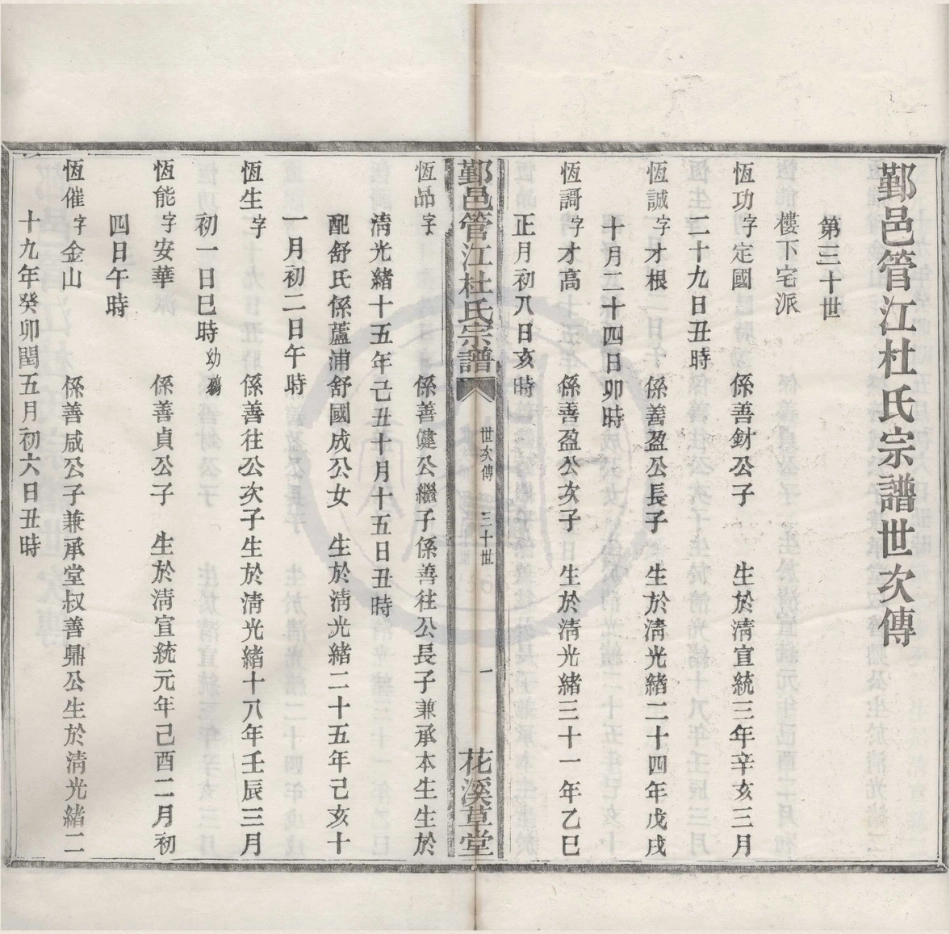 鄞邑管江杜氏宗譜世次傳
第三十世
樓下宅派
恆功字定國 係善財公子 生於清宣統三年辛亥三月
二十九日丑時
恆誠字才根 係善盈公長子 生於清光緒二十四年戊戌
十月二十四日卯時
恆謌字才高 係善盈公次子 生於清光緒三十一年乙巳
正月初八日亥時
鄞邑管江杜氏宗譜 世次傳 三十世 一 花溪草堂
恆品字 係善健公繼子係善往公長子兼承本生生於
清光緒十五年己丑十月十五日丑時
配舒氏係蘆浦舒國成公女 生於清光緒二十五年己亥十
一月初二日午時
恆生字 係善往公次子生於清光緒十八年壬辰三月
初一日巳時幼殤
恆能字安華 係善貞公子 生於清宣統元年己酉二月初
四日午時
恆催字金山 係善咸公子兼承堂叔善鼎公生於清光緒二
十九年癸卯閏五月初六日丑時